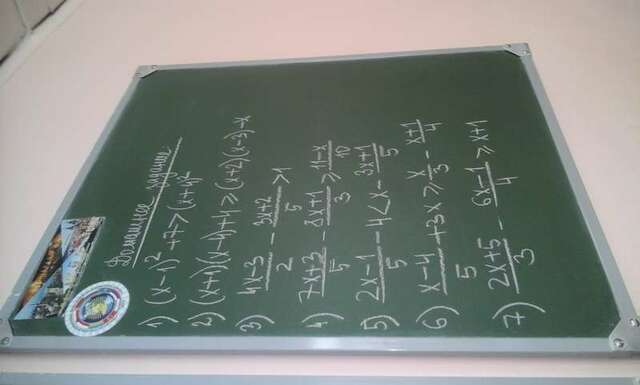 Домашнее задание.
1) (x-1)² +7>(x+4)²
2) (x+1)(x-4)+4 ≥ (x+2)(x-3)-x
3) (4x-3)/2 - (3x+2)/5 >1
4) (7x+3)/5 - (8x+1)/3 ≥ (11-x)/10
5) (2x-1)/5 - 4 < x - (3x+1)/5
6) (x-4)/5 + 3x ≥ x/3 - (x+1)/4
7) (2x+5)/3 - (6x-1)/4 ≥ x+1